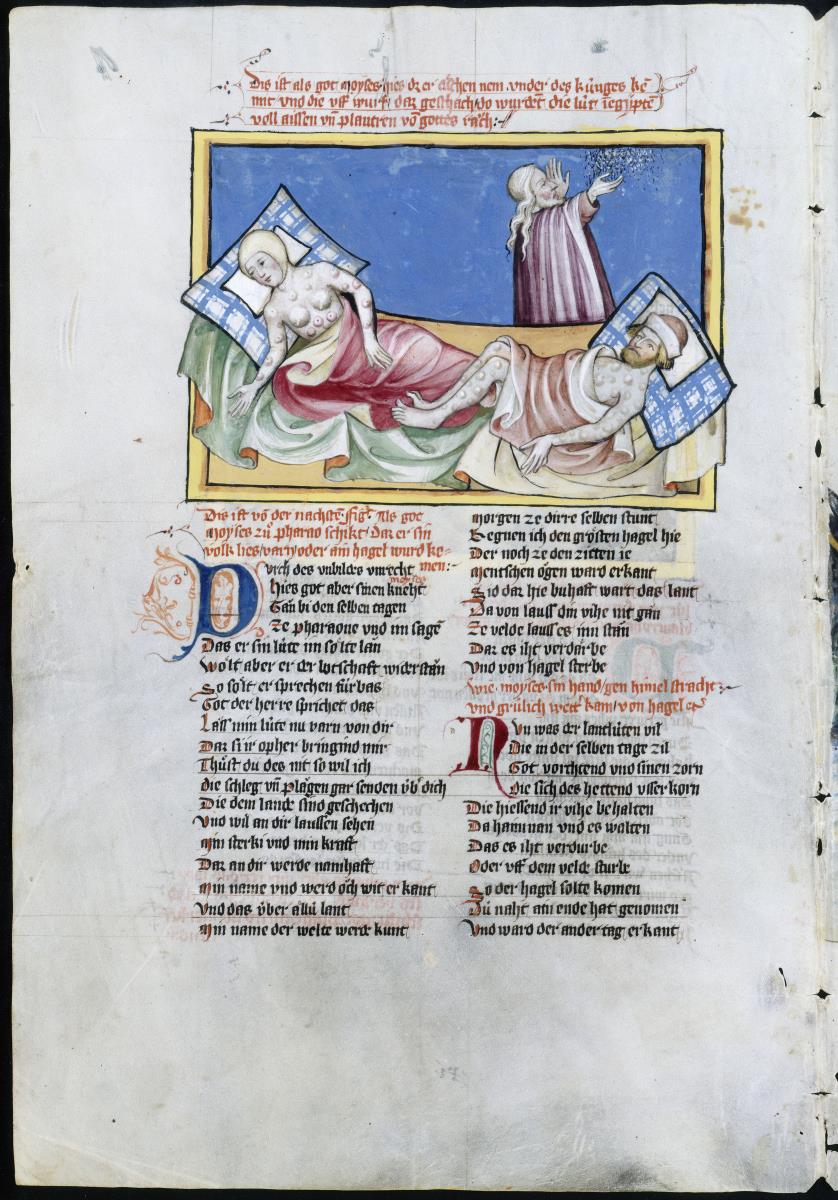 Dis ist als got moyses hies dz er eschen nem vnder des kunges ke
mit vnd die vff wurf daz geschach do wurdēt die lut ī egipte
voll aissen vn̄ plautren vō gottes rach
Dis ist vō der nachstē fig Als got
moyses zů pharao schikt daz er sin
volk lies varn oder ain hagel wurd ke-
men
Durch des vnbildes vnrecht
hies got aber sinen kneht
moyses
Gān bi den selben tagen
Ze pharaone vnd im sagē
Das er sin lúte im solte lan
Wolt aber er der botschaft widerstān
So solt er sprechen fúrbas
Got der herre sprichet das
Lass min lúte nu varn von dir
Daz si ir opher bringind mir
Thůst du des nit so wil ich
die schleg vn̄ plāgen gar senden vb dich
Die dem lande sind geschechen
Vnd wil an dir laussen sehen
Min sterki vnd min kraft
Daz an dir werde namhaft
Min name vnd werd och wit er kant
Vnd das v́ber allú lant
Min name der welte werde kunt
morgen ze dirre selben stunt
Regnen ich den grösten hagel hie
Der noch ze den zitten ie
Mentschen ogen ward erkant
Sid daz hie buhaft wart das lant
Da von lauss din vihe nit gān
Ze velde lauss es inn stān
Daz es iht verdarbe
Vnd von hagel sterbe
Wie moyses sin hand gen himel stracht
vnd grúlich wett kam von hagel
Nvn was der lantlúten vil
Die in der selben tage zil
Got vorchtend vnd sinen zorn
Die sich des hettend vsser korn
Die hiessend ir vihe behalten
Da haim nan vnd es walten
Das es iht verdurbe
Oder vff dem velde sturbe
So der hagel solte komen
Dú naht ain ende hat genomen
Vnd ward der ander tag erkant